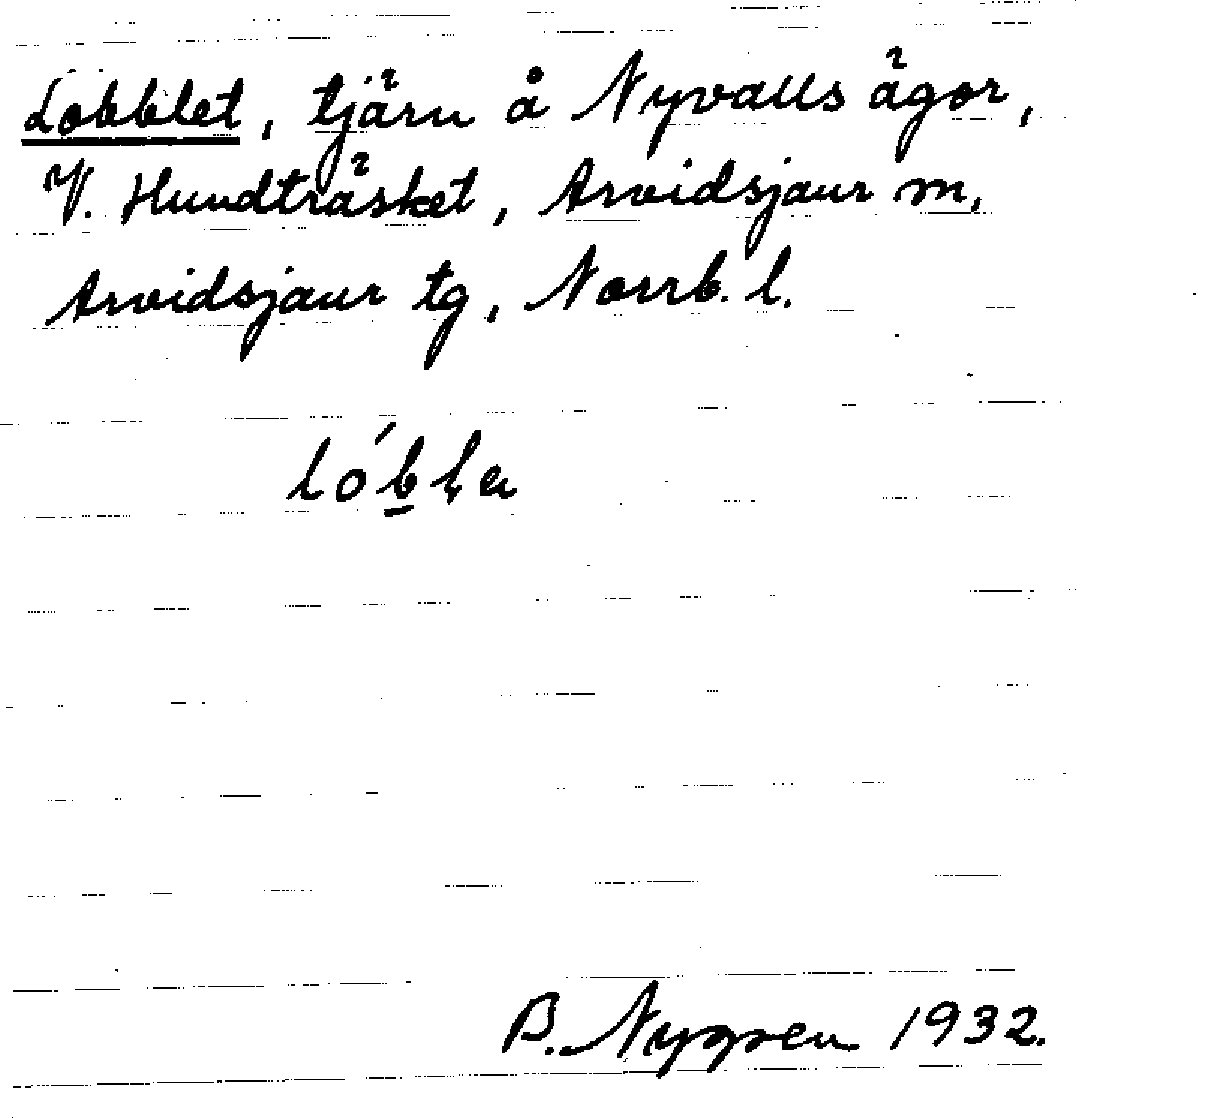 Lobblet, tjärn å Nyvalls ägor,
V. Hundträsket, Arvidsjaur m,
Arvidsjaur tg, Norrb. l.
lób̲la
B. Nygren 1932.